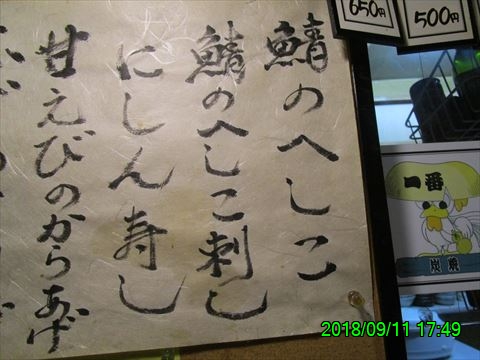 鯖のへしこ
鯖のへしこ刺し
にしん寿し
甘えびのからあげ
650円
500円
一番
炭焼
2018/09/11 17:49